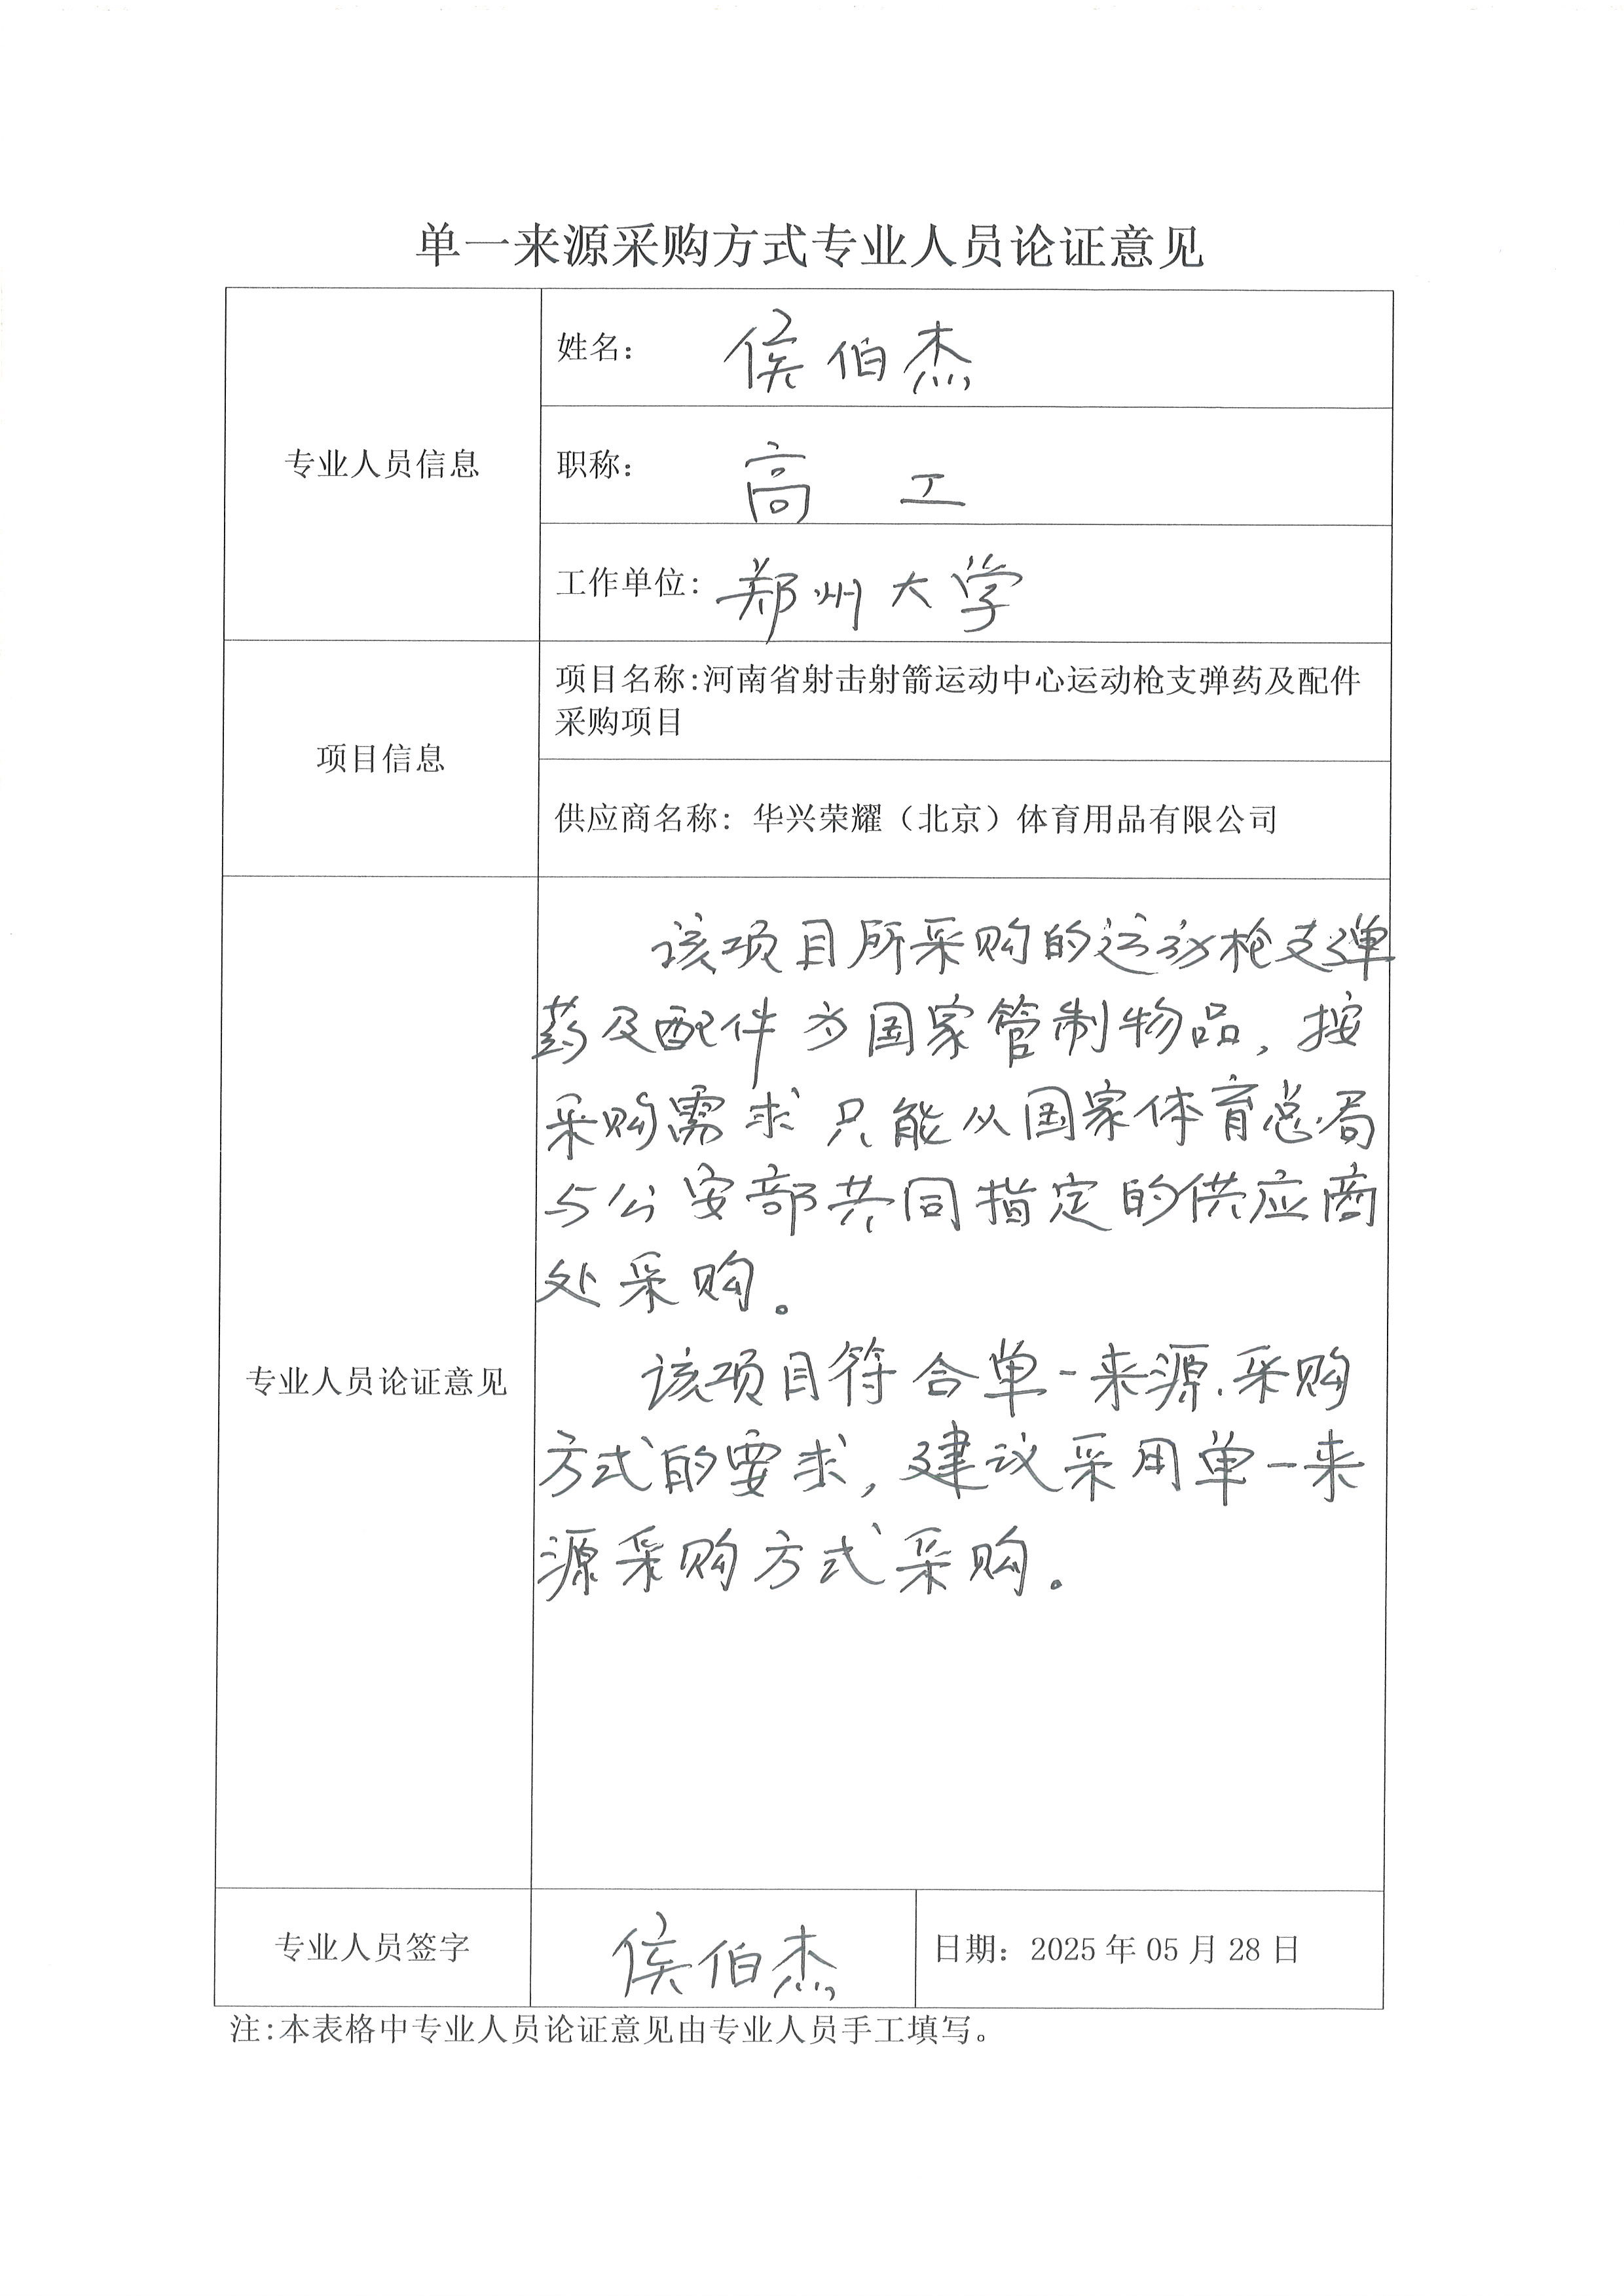 单一来源采购方式专业人员论证意见
专业人员信息
姓名： 侯伯杰
职称： 高 工
工作单位： 郑州大学
项目信息
项目名称:河南省射击射箭运动中心运动枪支弹药及配件
采购项目
供应商名称：华兴荣耀（北京）体育用品有限公司
专业人员论证意见
该项目所采购的运动枪支弹
药及配件为国家管制物品，按
采购需求只能从国家体育总局
与公安部共同指定的供应商
处采购。
该项目符合单一来源采购
方式的要求，建议采用单一来
源采购方式采购。
专业人员签字
侯伯杰
日期：2025年05月28日
注:本表格中专业人员论证意见由专业人员手工填写。